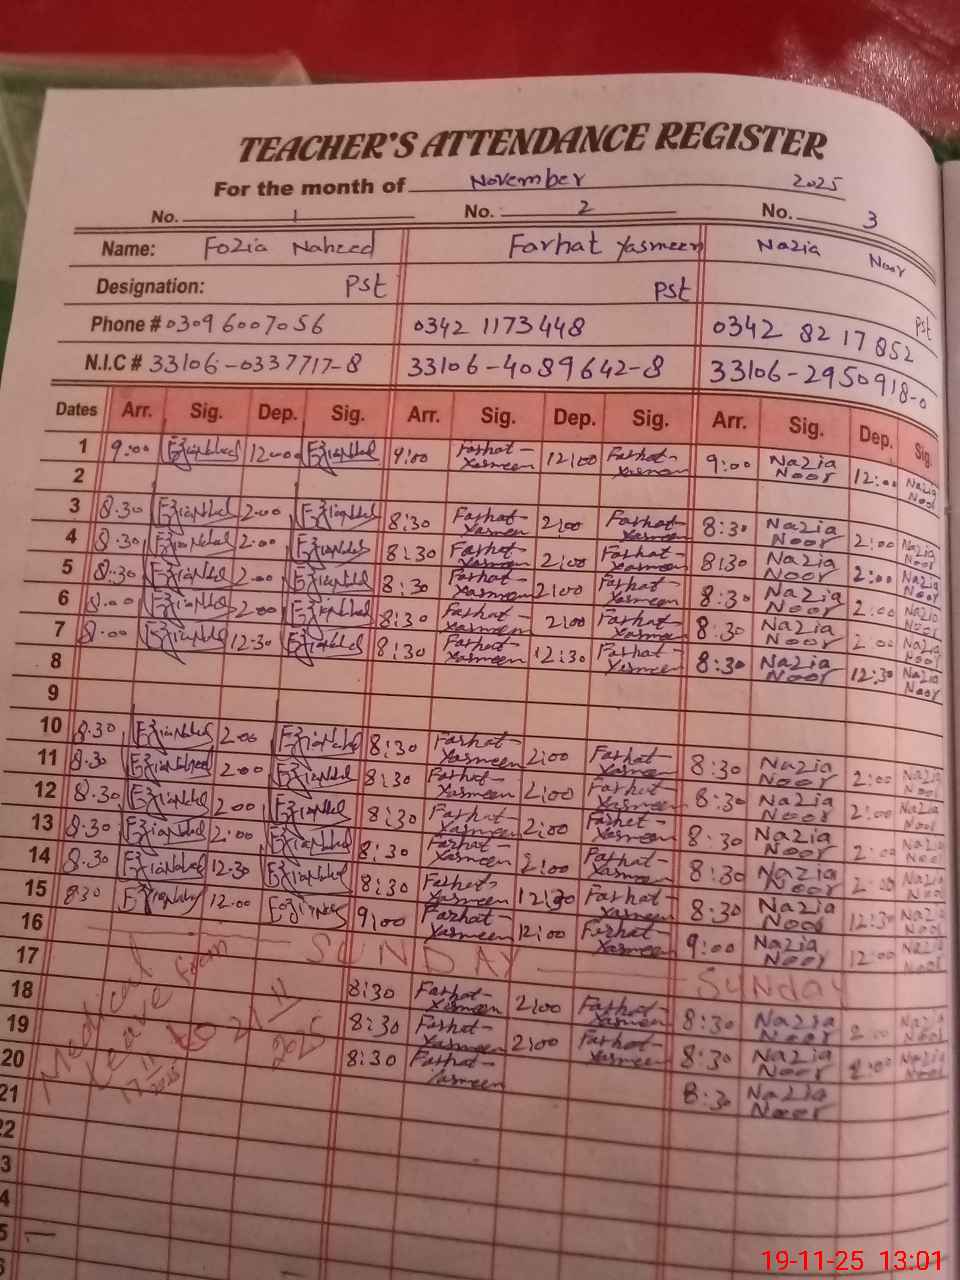 TEACHER'S ATTENDANCE REGISTER
For the month of November 2025
No. 1 No. 2 No. 3
Name: Fozia Naheed Farhat Yasmeen Nazia Noor
Designation: Pst Pst Pst
Phone # 03096007056 0342 1173448 0342 8217852
N.I.C # 33106-0337717-8 33106-4089642-8 33106-2950918-0
Dates Arr. Sig. Dep. Sig. Arr. Sig. Dep. Sig. Arr. Sig. Dep. Sig.
1 9:00 12:00 9:00 Farhat Yasmeen 12:00 Farhat Yasmeen 9:00 Nazia Noor 12:00 Nazia Noor
2
3 8.30 2.00 8:30 Farhat Yasmeen 2:00 Farhat Yasmeen 8:30 Nazia Noor 2:00 Nazia Noor
4 8.30 2.00 8:30 Farhat Yasmeen 2:00 Farhat Yasmeen 8:30 Nazia Noor 2:00 Nazia Noor
5 8:30 2.00 8:30 Farhat Yasmeen 2:00 Farhat Yasmeen 8:30 Nazia Noor 2:00 Nazia Noor
6 8.00 2.00 8:30 Farhat Yasmeen 2:00 Farhat Yasmeen 8:30 Nazia Noor 2:00 Nazia Noor
7 8.00 12.30 8:30 Farhat Yasmeen 12:30 Farhat Yasmeen 8:30 Nazia Noor 12:30 Nazia Noor
8
9
10 8.30 2.00 8:30 Farhat Yasmeen 2:00 Farhat Yasmeen 8:30 Nazia Noor 2:00 Nazia Noor
11 8.30 2.00 8:30 Farhat Yasmeen 2:00 Farhat Yasmeen 8:30 Nazia Noor 2:00 Nazia Noor
12 8.30 2.00 8:30 Farhat Yasmeen 2:00 Farhat Yasmeen 8:30 Nazia Noor 2:00 Nazia Noor
13 8:30 2:00 8:30 Farhat Yasmeen 2:00 Farhat Yasmeen 8:30 Nazia Noor 2:00 Nazia Noor
14 8.30 12.30 8:30 Farhat Yasmeen 12:30 Farhat Yasmeen 8:30 Nazia Noor 12:30 Nazia Noor
15 8.30 12.00 9:00 Farhat Yasmeen 12:00 Farhat Yasmeen 9:00 Nazia Noor 12:00 Nazia Noor
16 SUNDAY Sunday
17 8:30 Farhat Yasmeen 2:00 Farhat Yasmeen 8:30 Nazia Noor 2:00 Nazia Noor
18 8:30 Farhat Yasmeen 2:00 Farhat Yasmeen 8:30 Nazia Noor 2:00 Nazia Noor
19 8:30 Farhat Yasmeen 8:30 Nazia Noor
20
21
22
3
4
5
Medical Leave from
17 11 2025 to 21 11 2025
19-11-25 13:01